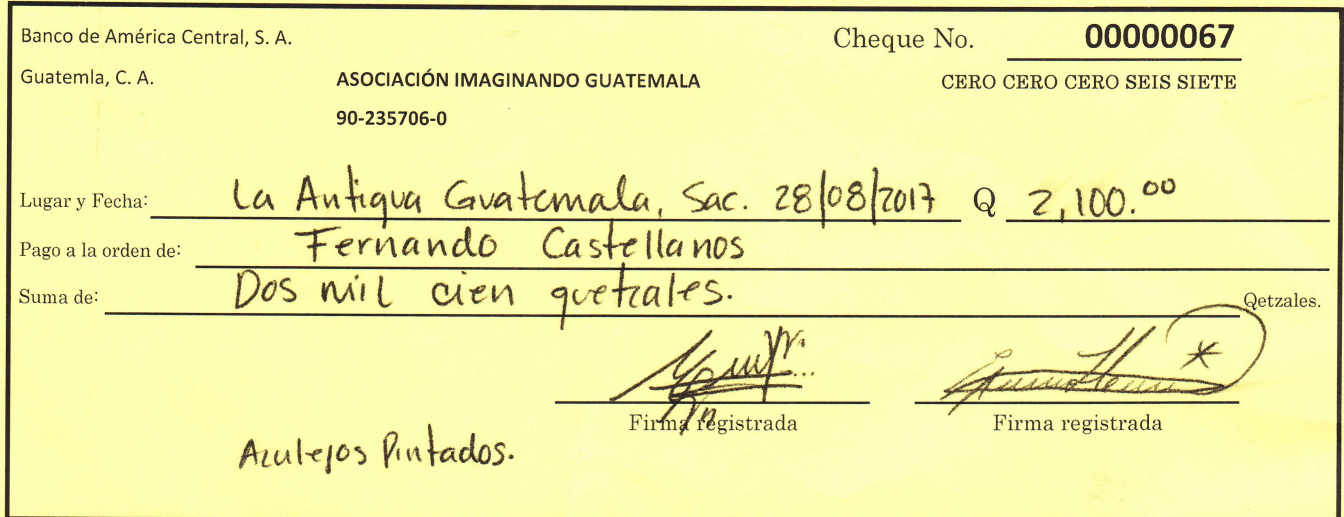 Banco de América Central, S. A.
Cheque No. 00000067
Guatemla, C. A.
ASOCIACIÓN IMAGINANDO GUATEMALA
CERO CERO CERO SEIS SIETE
90-235706-0
Lugar y Fecha: La Antigua Guatemala, Sac. 28/08/2017 Q 2,100.00
Pago a la orden de: Fernando Castellanos
Suma de: Dos mil cien quetzales. Qetzales.
Firma registrada
Firma registrada
Azulejos Pintados.